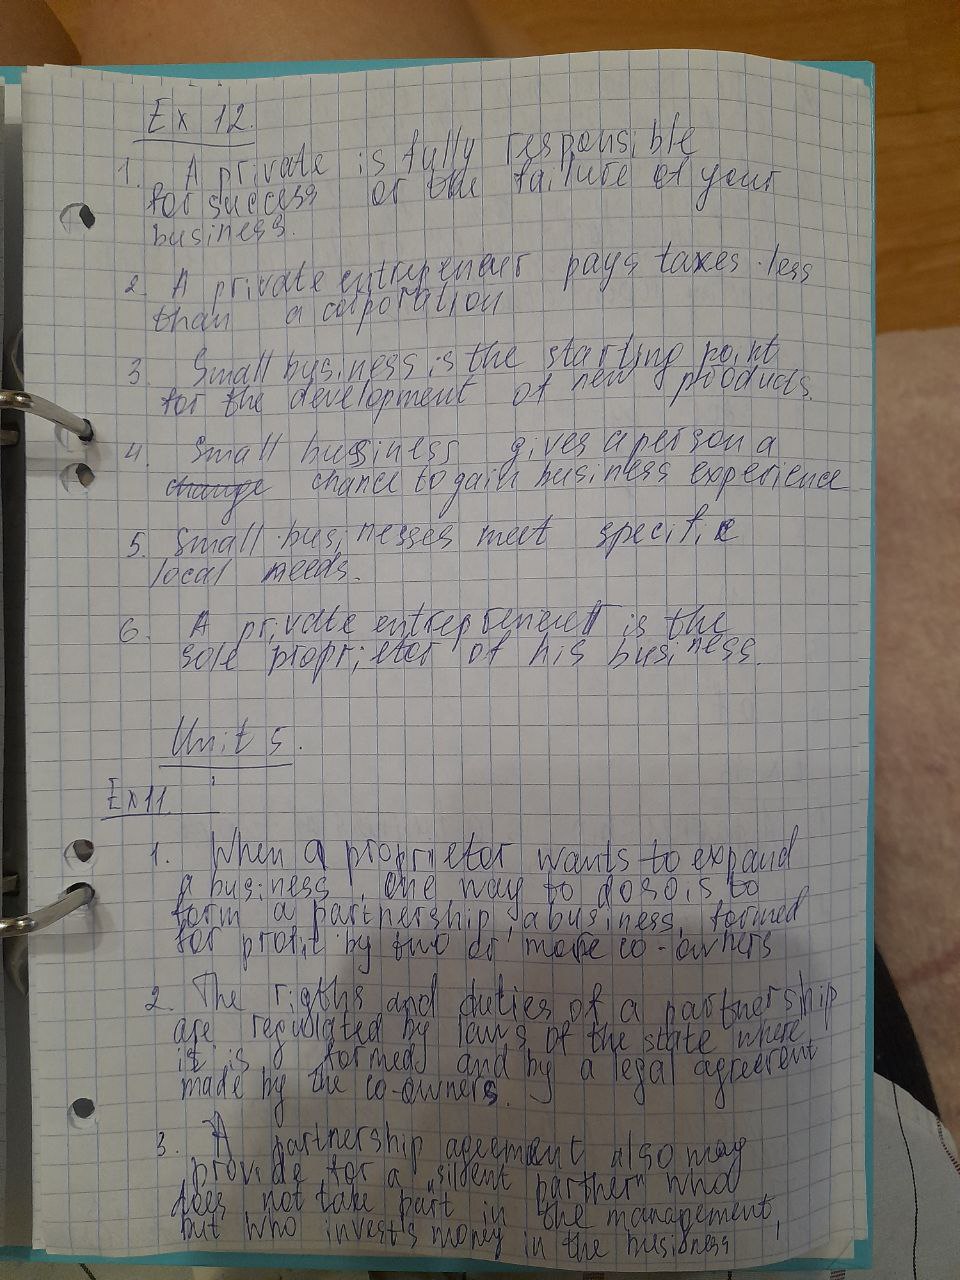 Ex 12.
1. A private is fully responsible
for success or the failure of your
business.
2. A private entrepeneur pays taxes less
than a corporation
3. Small business is the starting point
for the development of new products.
4. Small business gives a person a
change chance to gain business experience
5. Small businesses meet specific
local needs.
6. A private entrepreneur is the
sole proprietor of his business.
Unit 5.
Ex 11
1. When a proprietor wants to expand
a business, one way to do so is to
form a partnership, a business, formed
for profit by two or more co-owners
2. The rigths and duties of a partnership
are regulated by laws of the state where
it is formed and by a legal agreement
made by the co-owners.
3. A partnership agreement also may
provide for a „silent partner" who
does not take part in the management,
but who invests money in the business